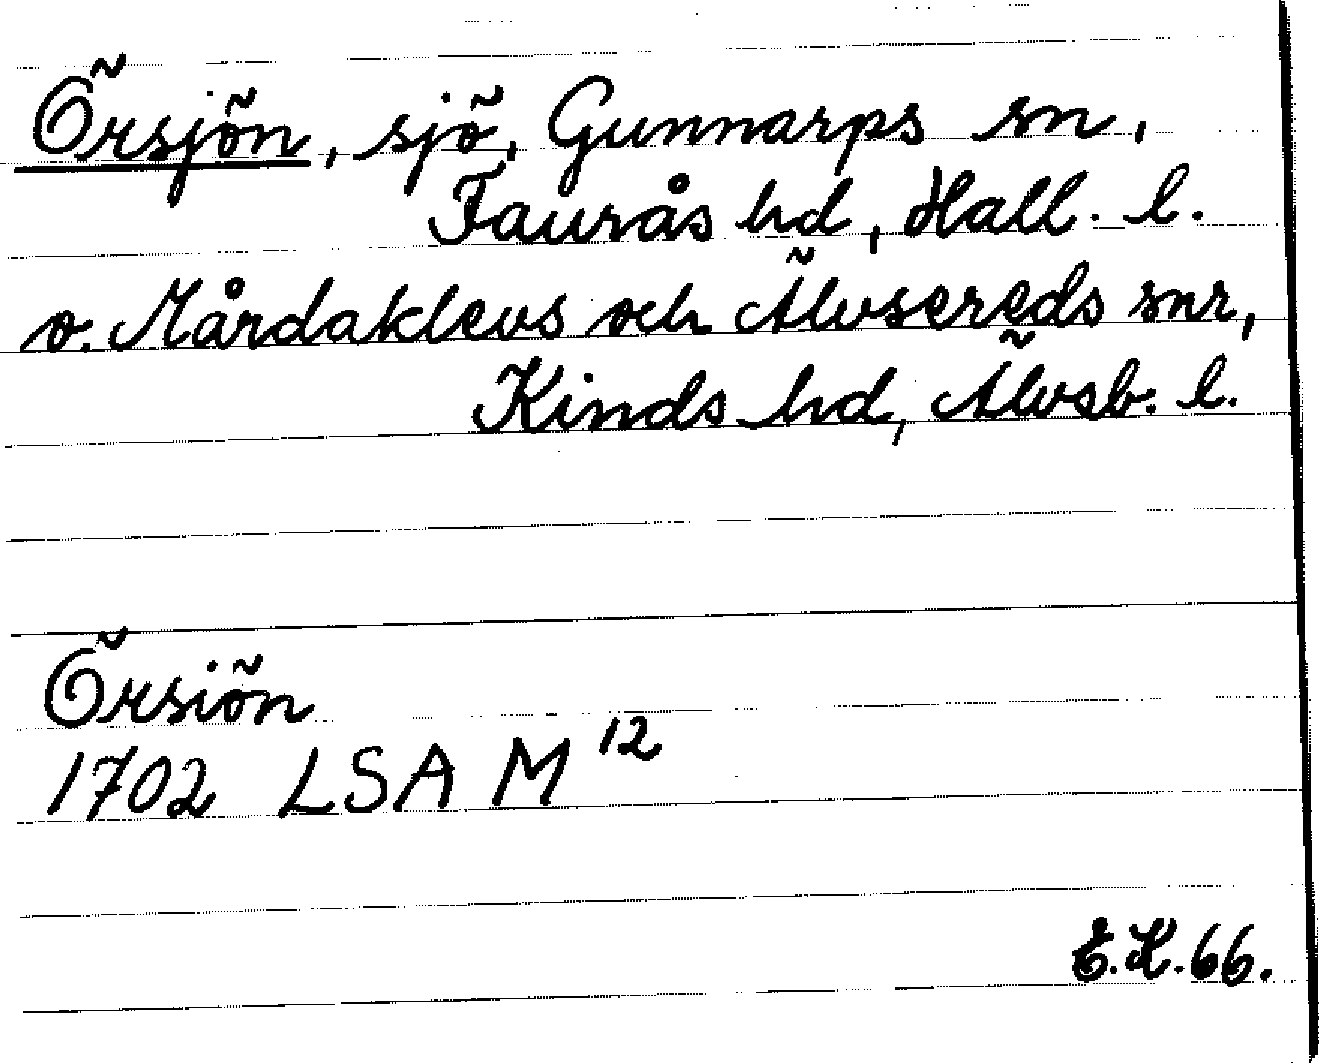 Örsjön, sjö, Gunnarps sn,
Faurås hd, Hall. l.
o. Mårdaklevs och Älvsereds snr,
Kinds hd, Älvsb. l.
Örsiön
1702 LSA M 12
E.K.66.